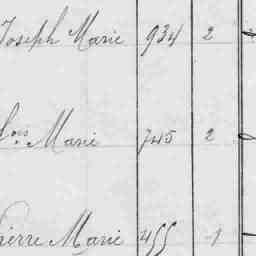 Joseph Marie 934 2
Marie 745 2
Pierre Marie 455 1